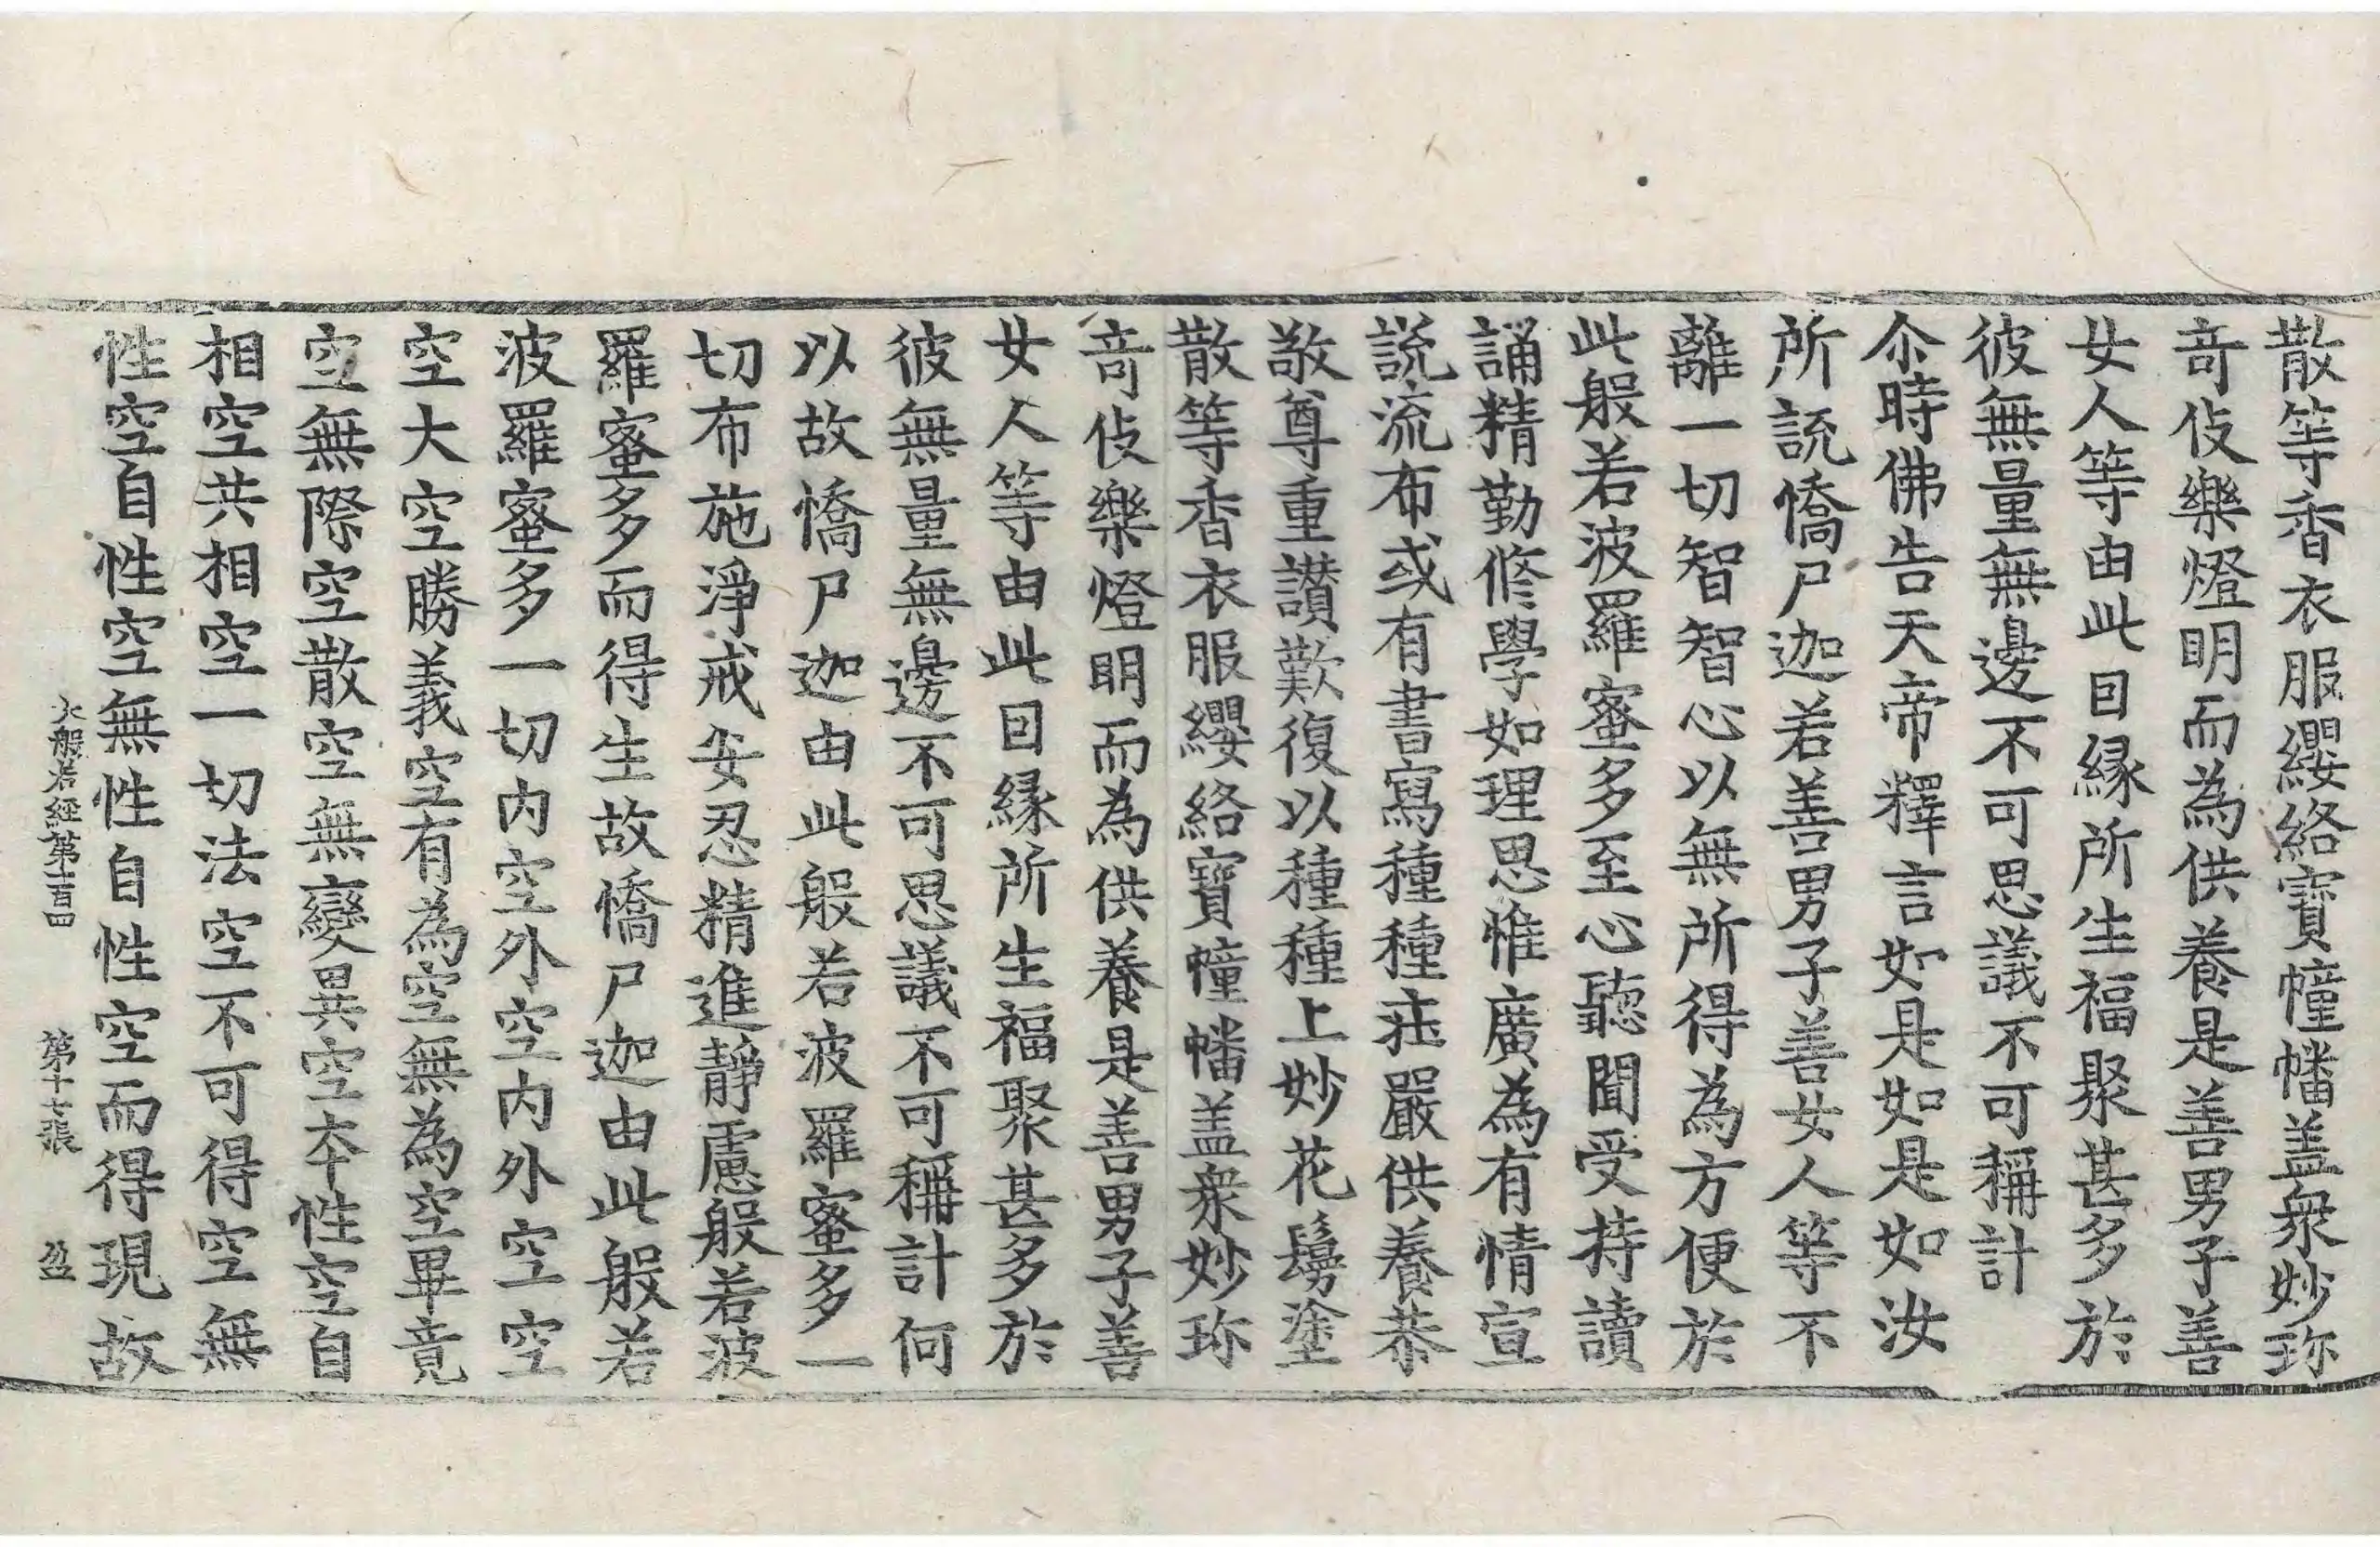 散等香衣服纓絡寶幢幡盖衆妙珎
竒伎樂燈明而為供養是善男子善
女人等由此因縁所生福聚甚多於
彼無量無邊不可思議不可稱計
尒時佛告天帝釋言如是如是如汝
所說憍尸迦若善男子善女人等不
離一切智智心以無所得為方便於
此般若波羅蜜多至心聽聞受持讀
誦精勤修學如理思惟廣為有情宣
說流布或有書寫種種莊嚴供養恭
敬尊重讃歎復以種種上妙花鬘塗
散等香衣服纓絡寶幢幡盖衆妙珎
竒伎樂燈明而為供養是善男子善
女人等由此因縁所生福聚甚多於
彼無量無邊不可思議不可稱計何
以故憍尸迦由此般若波羅蜜多一
切布施淨戒安忍精進靜慮般若波
羅蜜多而得生故憍尸迦由此般若
波羅蜜多一切内空外空内外空空
空大空勝義空有為空無為空畢竟
空無際空散空無變異空夲性空自
相空共相空一切法空不可得空無
性空自性空無性自性空而得現故
大般若經第一百四 第十七張 盈